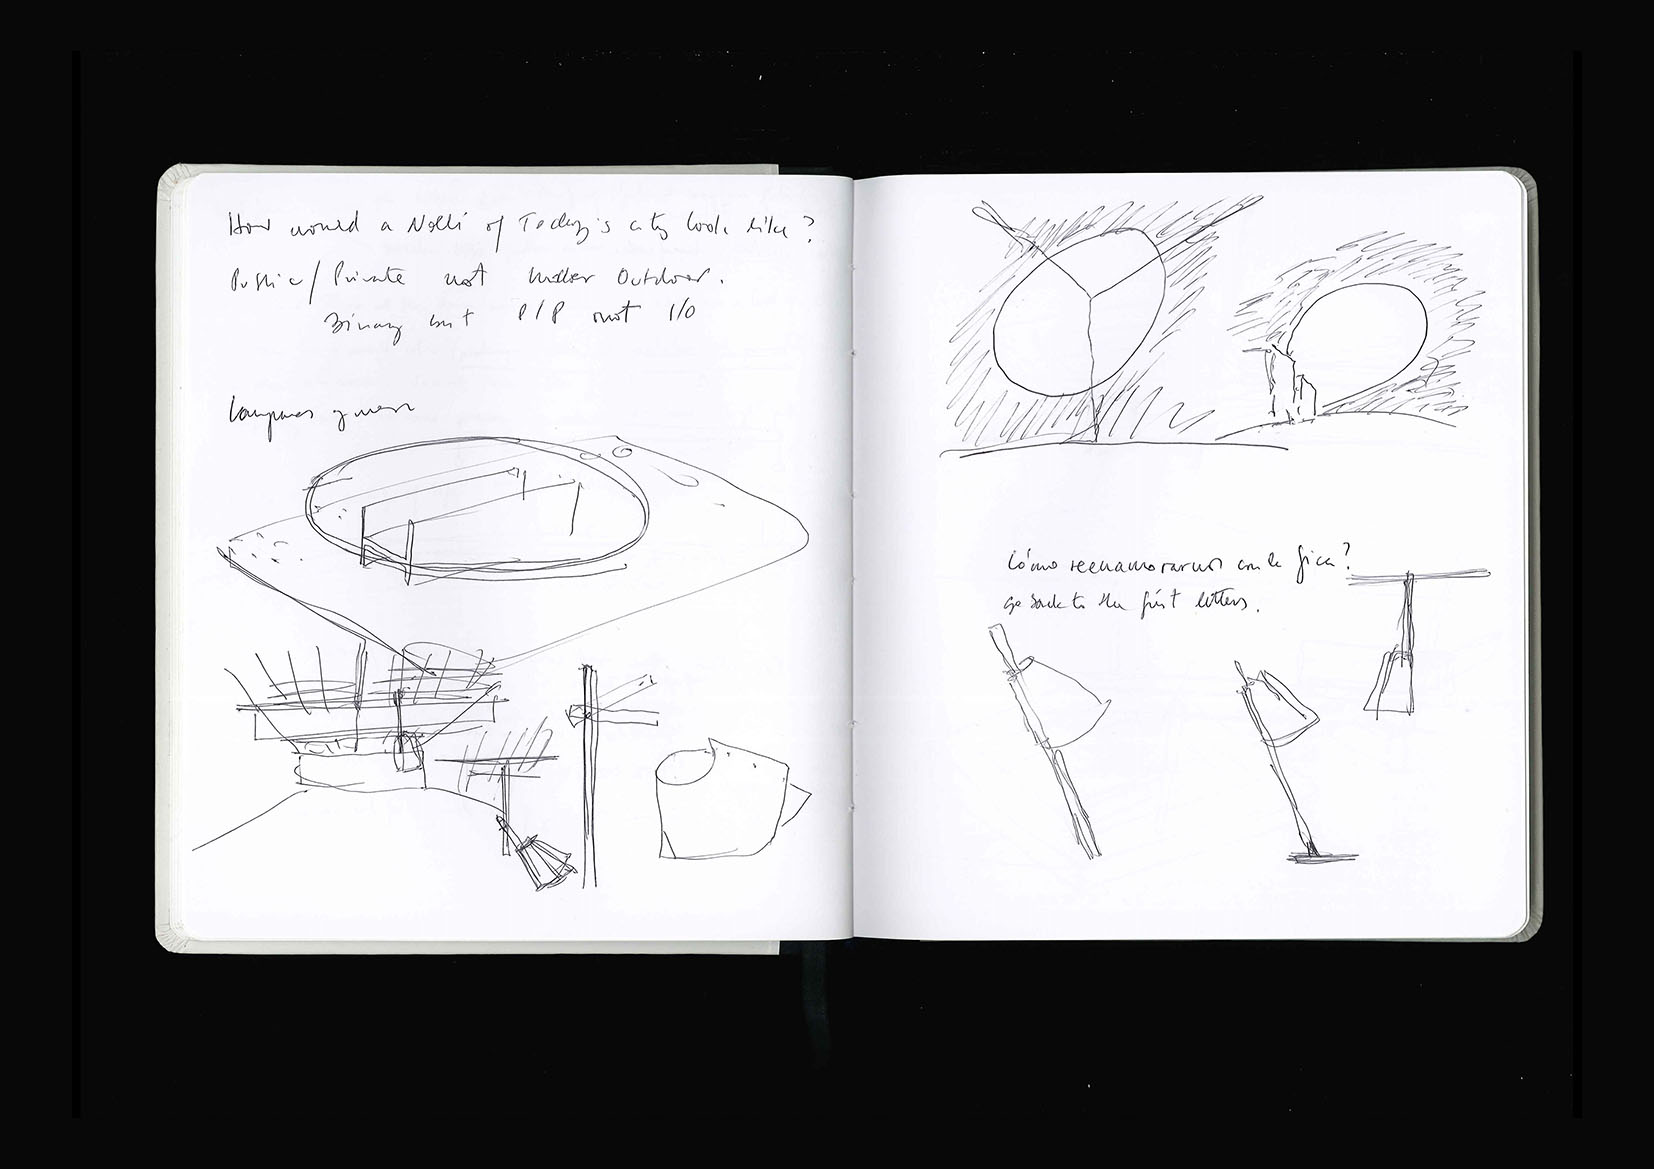 How would a Nolli of Today's city look like?
Public/Private not Indoor Outdoor.
Binary but P/P not I/O
Lamparas y mesa
Cómo reenamorarnos con la física?
go back to the first letters.